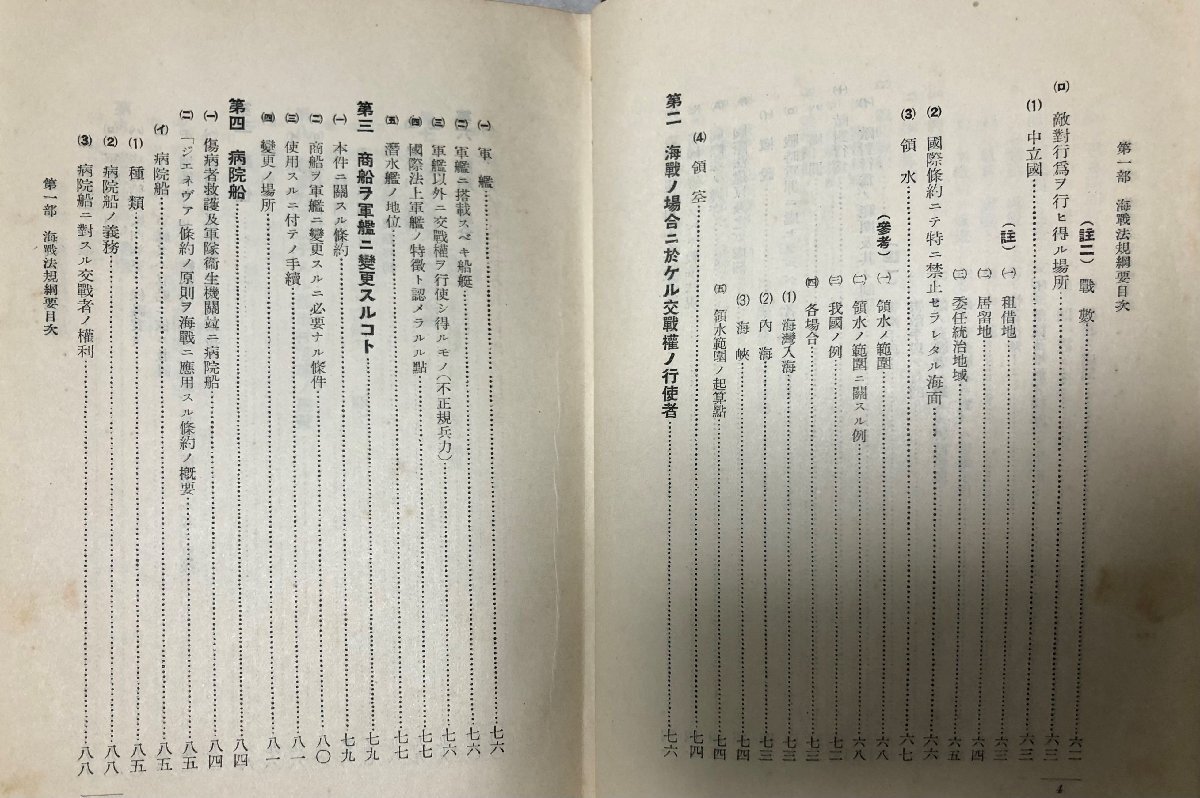 第一部 海戰法規綱要目次
(註二) 戰數……六一
(ロ) 敵對行爲ヲ行ヒ得ル場所……六三
(1) 中立國……六三
(註) (一) 租借地……六三
(二) 居留地……六四
(三) 委任統治地域……六五
(2) 國際條約ニテ特ニ禁止セラレタル海面……六六
(3) 領水……六七
(參考) (一) 領水ノ範圍……六八
(二) 領水ノ範圍ニ關スル例……六八
(三) 我國ノ例……七二
(四) 各場合……七三
(1) 海灣入海……七三
(2) 內海……七三
(3) 海峽……七四
(五) 領水範圍ノ起算點……七四
(4) 領空……七四
第二 海戰ノ場合ニ於ケル交戰權ノ行使者……七六
(一) 軍艦……七六
(二) 軍艦ニ搭載スベキ船艇……七六
(三) 軍艦以外ニ交戰權ヲ行使シ得ルモノ(不正規兵力)……七六
(四) 國際法上軍艦ノ特徵ト認メラルル點……七七
(五) 潛水艦ノ地位……七七
第三 商船ヲ軍艦ニ變更スルコト……七九
(一) 本件ニ關スル條約……七九
(二) 商船ヲ軍艦ニ變更スルニ必要ナル條件……八〇
(三) 使用スルニ付テノ手續……八一
(四) 變更ノ場所……八一
第四 病院船……八四
(一) 傷病者救護及軍隊衞生機關竝ニ病院船……八四
(二) 「ジエネヴア」條約ノ原則ヲ海戰ニ應用スル條約ノ概要……八五
(イ) 病院船……八五
(1) 種類……八五
(2) 病院船ノ義務……八八
(3) 病院船ニ對スル交戰者ノ權利……八八
第一部 海戰法規綱要目次